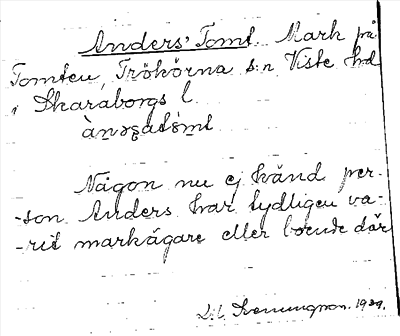 Anders' Tomt. Mark på
Tomten, Trökörna s:n Viste hd
i Skaraborgs l.
Någon nu ej känd per-
-son Anders har tydligen va-
-rit markägare eller boende där
1939.